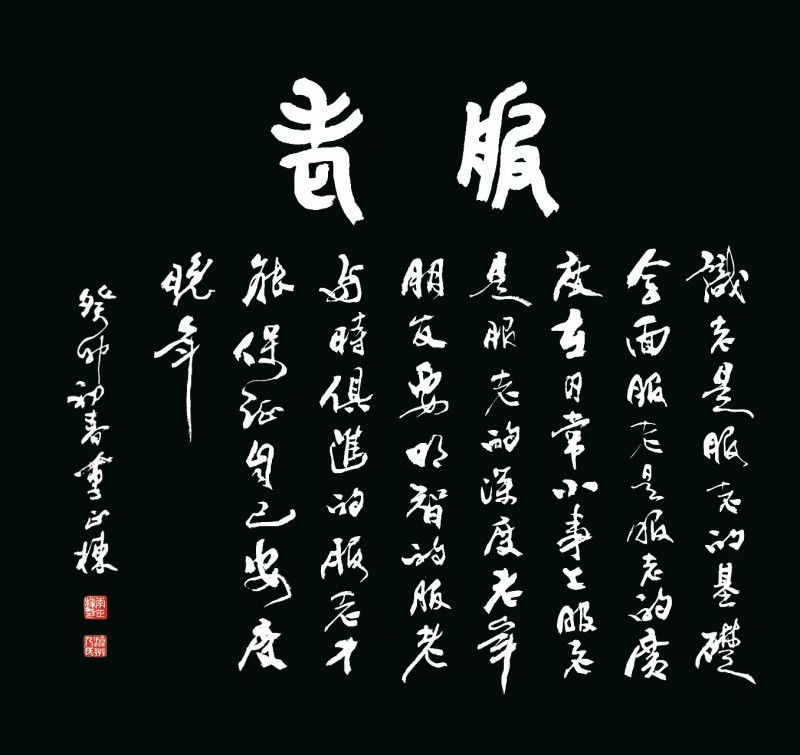 服老
識老是服老的基礎
全面服老是服老的廣
度在日常小事上服老
是服老的深度老年
朋友要明智的服老
与時俱進的服老才
能保证自己安度
晚年
癸卯初春正棟